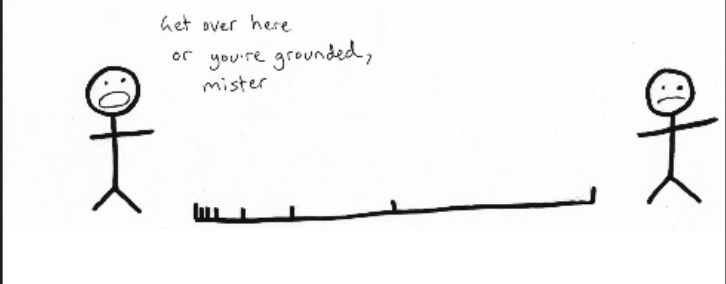 Get over here
or you're grounded,
mister